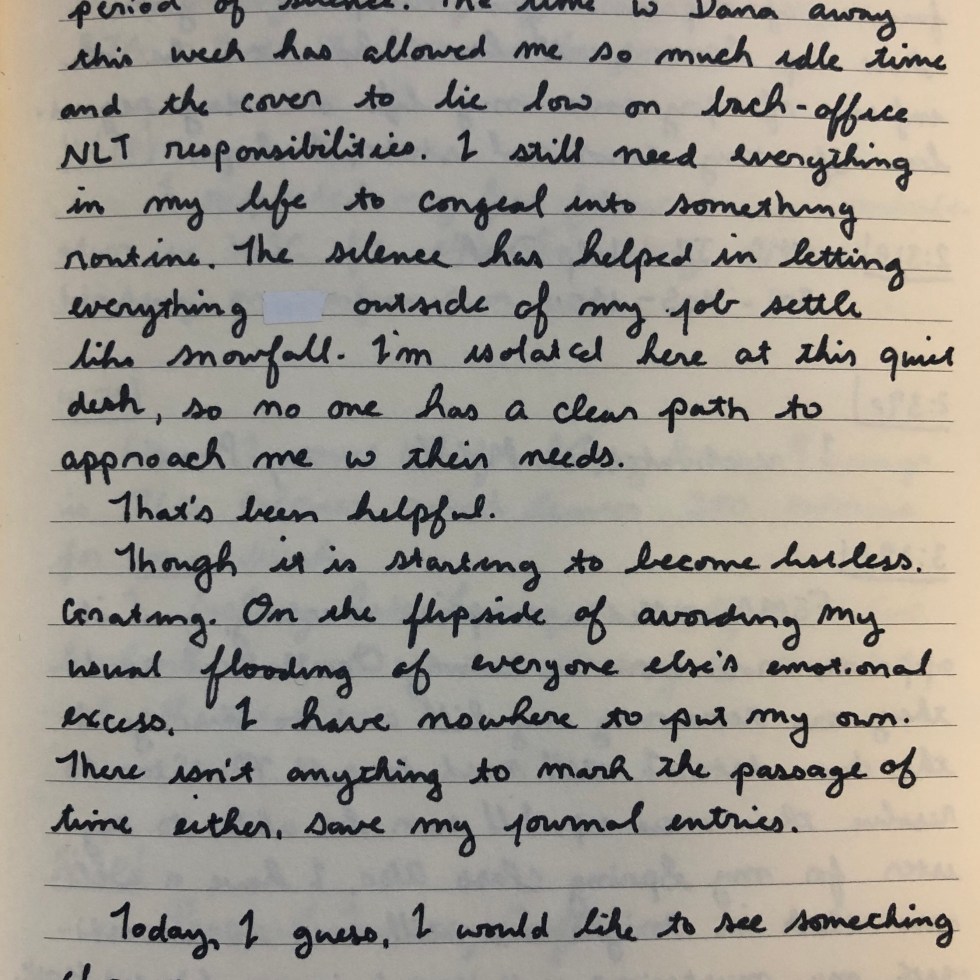 period of silence. The time w Dana away
this week has allowed me so much idle time
and the cover to lie low on back-office
NLT responsibilities. I still need everything
in my life to congeal into something
routine. The silence has helped in letting
everything outside of my job settle
like snowfall. I'm isolated here at this quiet
desk, so no one has a clear path to
approach me w their needs.
That's been helpful.
Though it is starting to become listless.
Grating. On the flipside of avoiding my
usual flooding of everyone else's emotional
excess, I have nowhere to put my own.
There isn't anything to mark the passage of
time either, save my journal entries.
Today, I guess, I would like to see something